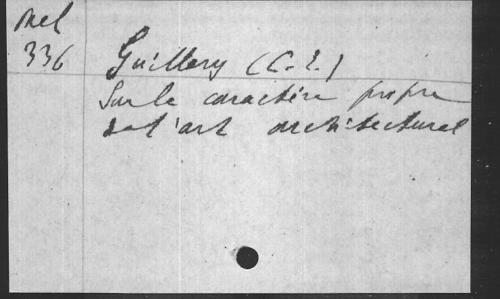 Mel
336 Guillery (C.E.)
Sur le caractère propre
de l'art architectural